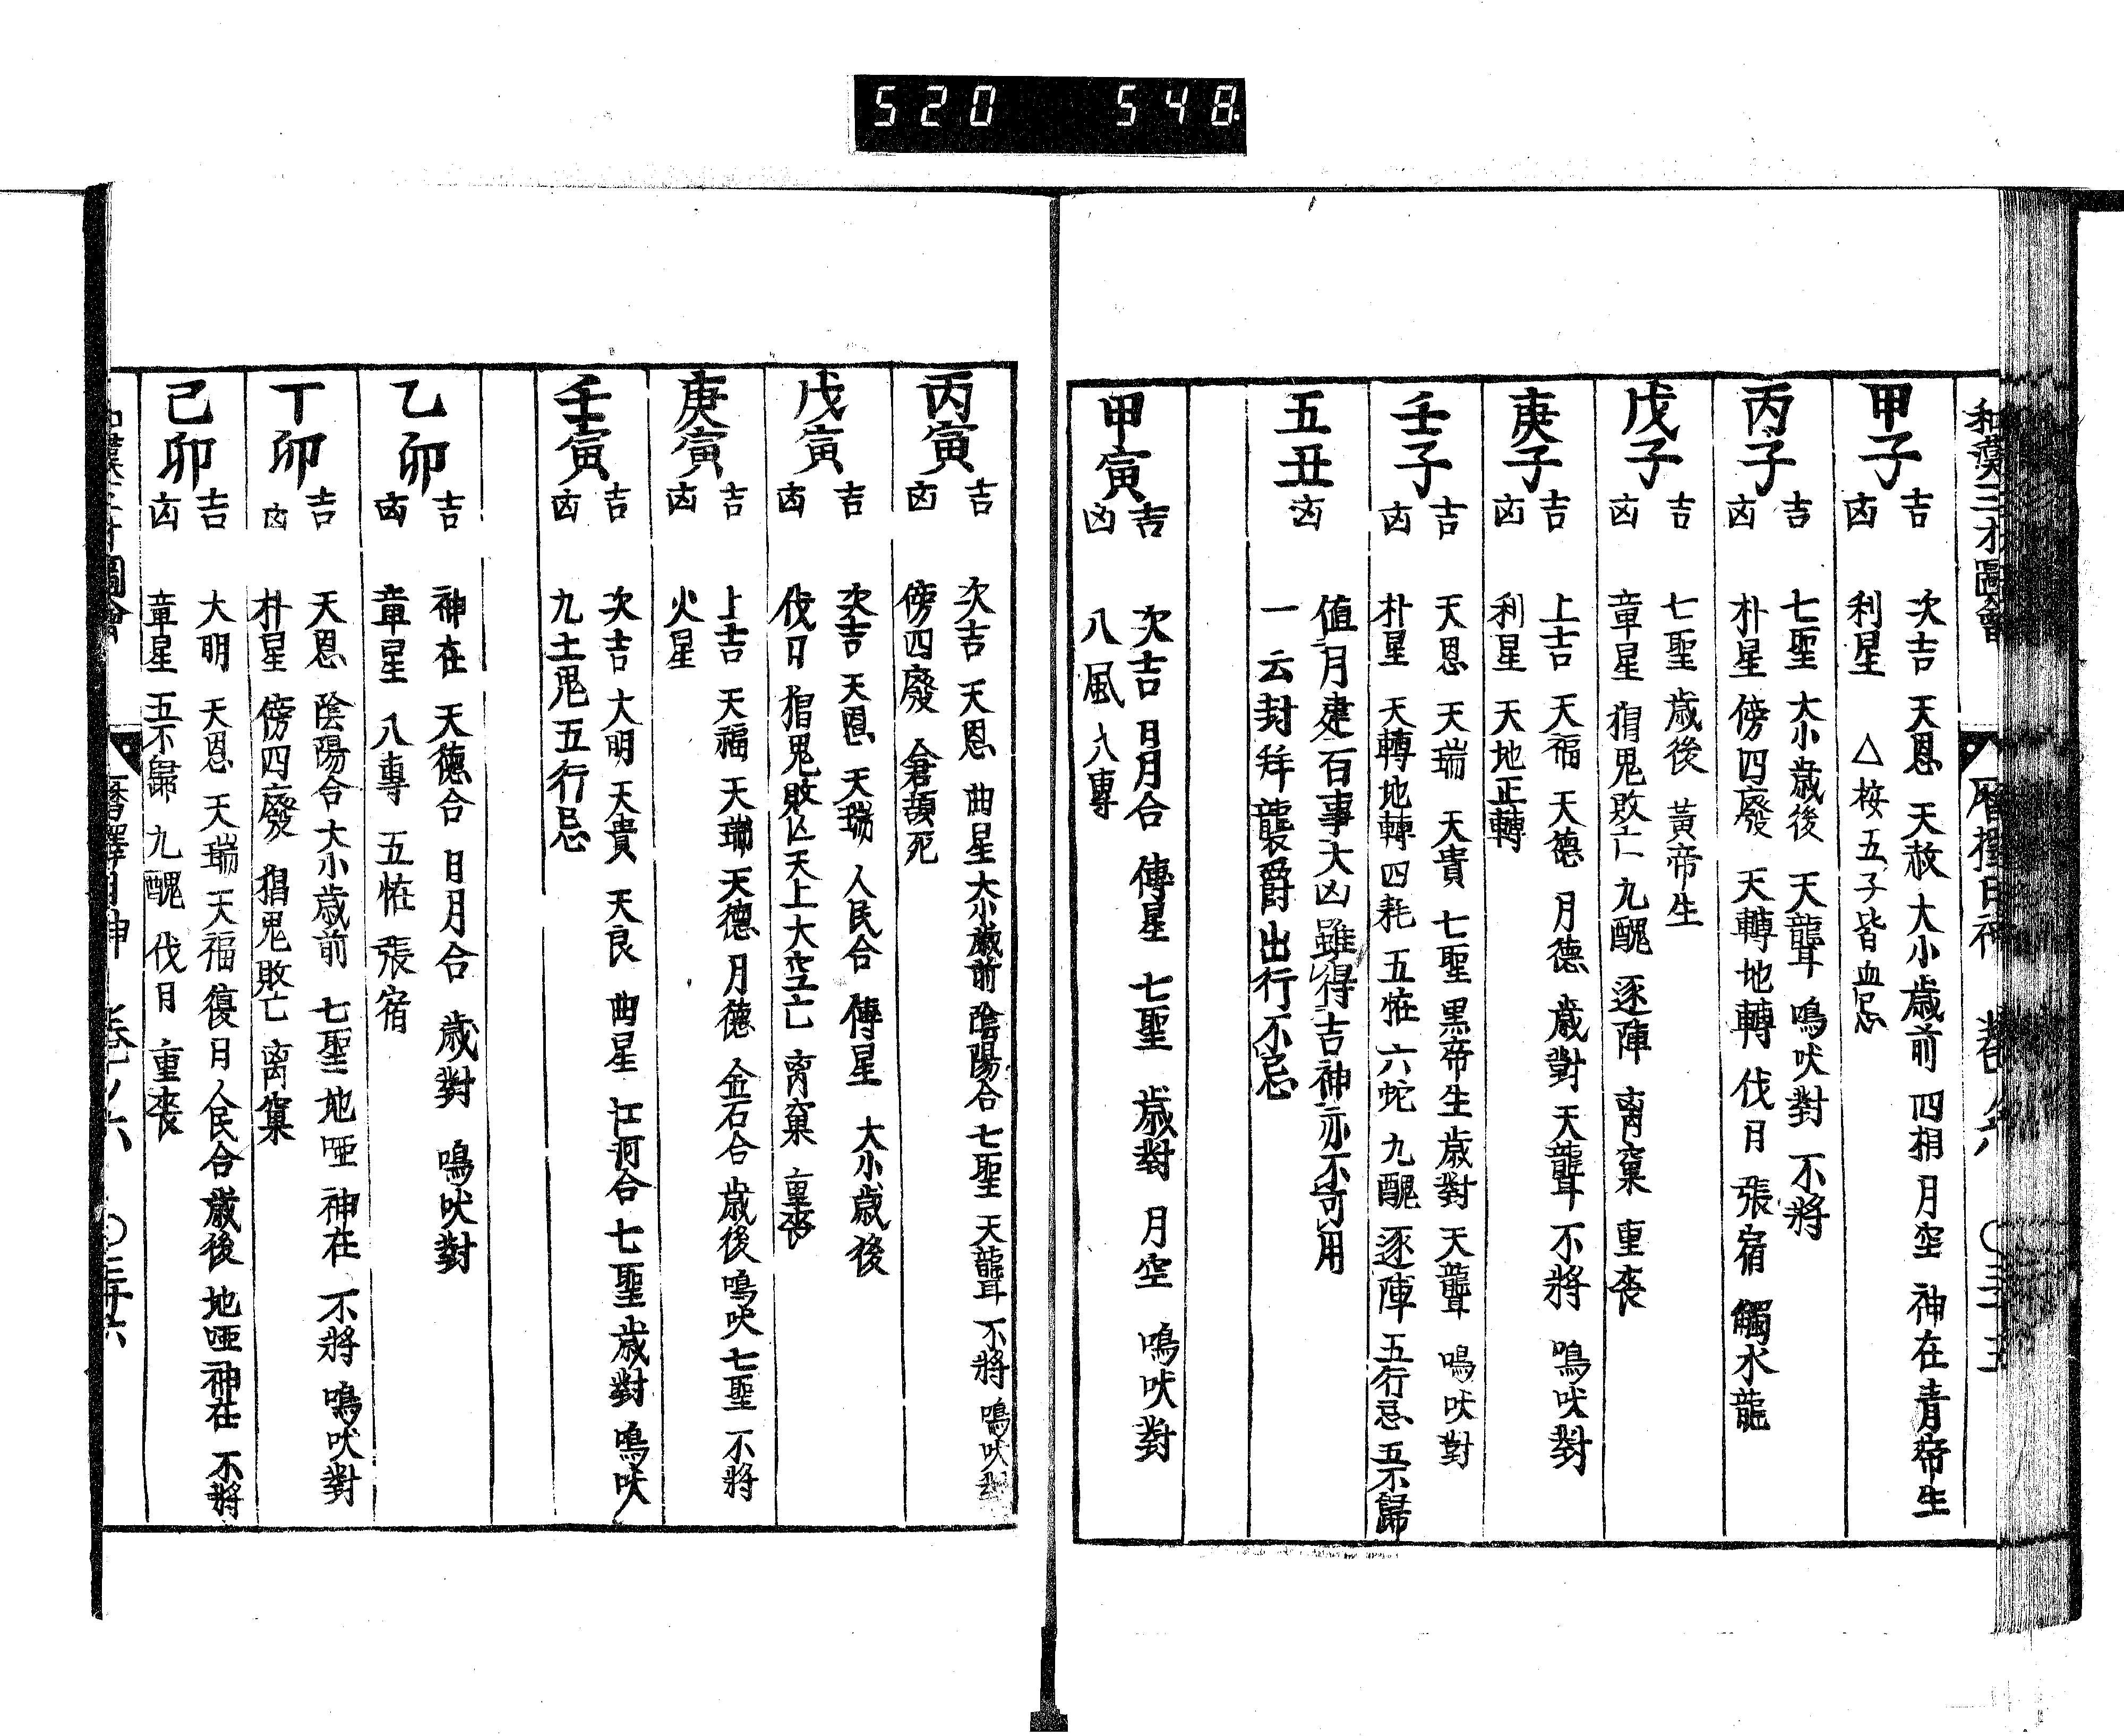 520 548
和漢三才圖會 曆擇日神 卷之六 〇三十五
甲子
吉 次吉 天恩 天赦 大小歳前 四相 月空 神在 青帝生
凶 利星 △按五子皆血忌
丙子
吉 七聖 大小歳後 天聾 鳴吠對 不將
凶 朴星 傍四廢 天轉地轉 伐日 張宿 觸水龍
戊子
吉 七聖 歳後 黃帝生
凶 章星 猖鬼敗亡 九醜 逐陣 离窠 重喪
庚子
吉 上吉 天福 天德 月德 歳對 天聾 不將 鳴吠對
凶 利星 天地正轉
壬子
吉 天恩 天瑞 天貴 七聖 黒帝生 歳對 天聾 鳴吠對
凶 朴星 天轉地轉 四耗 五㤜 六蛇 九醜 逐陣 五行忌 五不歸
五丑
凶 值月建百事大凶雖得吉神亦不可用
一云封拜襲爵出行不忌
甲寅
吉 次吉 日月合 傳星 七聖 歳對 月空 鳴吠對
凶 八風 八專
丙寅
吉 次吉 天恩 曲星 大小歳前 陰陽合 七聖 天聾 不將 鳴吠對
凶 傍四廢 倉頡死
戊寅
吉 次吉 天恩 天瑞 人民合 傳星 大小歳後
凶 伐日 猖鬼敗亡 天上大空亡 离窠 重喪
庚寅
吉 上吉 天福 天瑞 天德 月德 金石合 歳後 鳴吠 七聖 不將
凶 火星
壬寅
吉 次吉 大明 天貴 天良 曲星 江河合 七聖 歳對 鳴吠
凶 九土鬼 五行忌
乙卯
吉 神在 天德合 日月合 歳對 鳴吠對
凶 章星 八專 五㤜 張宿
丁卯
吉 天恩 陰陽合 大小歳前 七聖 地啞 神在 不將 鳴吠對
凶 朴星 傍四廢 猖鬼敗亡 离窠
己卯
吉 大明 天恩 天瑞 天福 復日 人民合 歳後 地啞 神在 不將
凶 章星 五不歸 九醜 伐日 重喪
和漢三才圖會 曆擇日神 卷之六 〇三十六